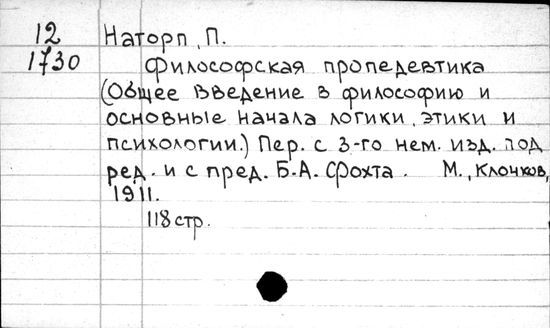 12 Наторп, П.
1730 Философская пропедевтика
(Общее введение в философию и
основные начала логики, этики и
психологии.) Пер. с 3-го нем. изд. под
ред. и с пред. Б.А. Фохта. М., Клочков,
1911.
118 стр.